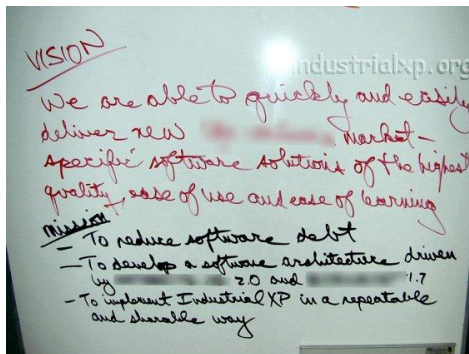 industrialxp.org
VISION
We are able to quickly and easily
deliver new market-
specific software solutions of the highest
quality, ease of use and ease of learning
mission
- To reduce software debt
- To develop a software architecture driven
by 2.0 and 1.7
- To implement Industrial XP in a repeatable
and sharable way